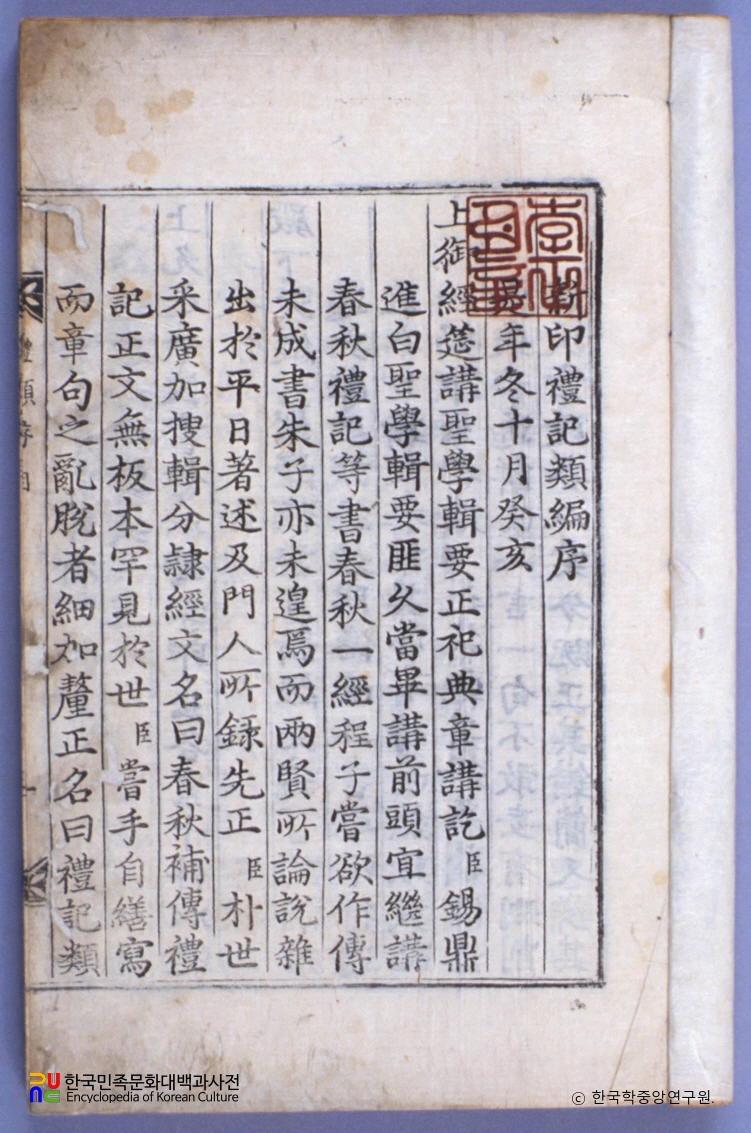 新印禮記類編序
年冬十月癸亥
上御經筵講聖學輯要正祀典章講訖臣錫鼎
進白聖學輯要匪久當畢講前頭宜繼講
春秋禮記等書春秋一經程子嘗欲作傳
未成書朱子亦未遑焉而兩賢所論說雜
出於平日著述及門人所錄先正臣朴世
采廣加搜輯分隷經文名曰春秋補傳禮
記正文無板本罕見於世臣嘗手自繕寫
而章句之亂脫者細加釐正名曰禮記類
한국민족문화대백과사전
Encyclopedia of Korean Culture
ⓒ 한국학중앙연구원.